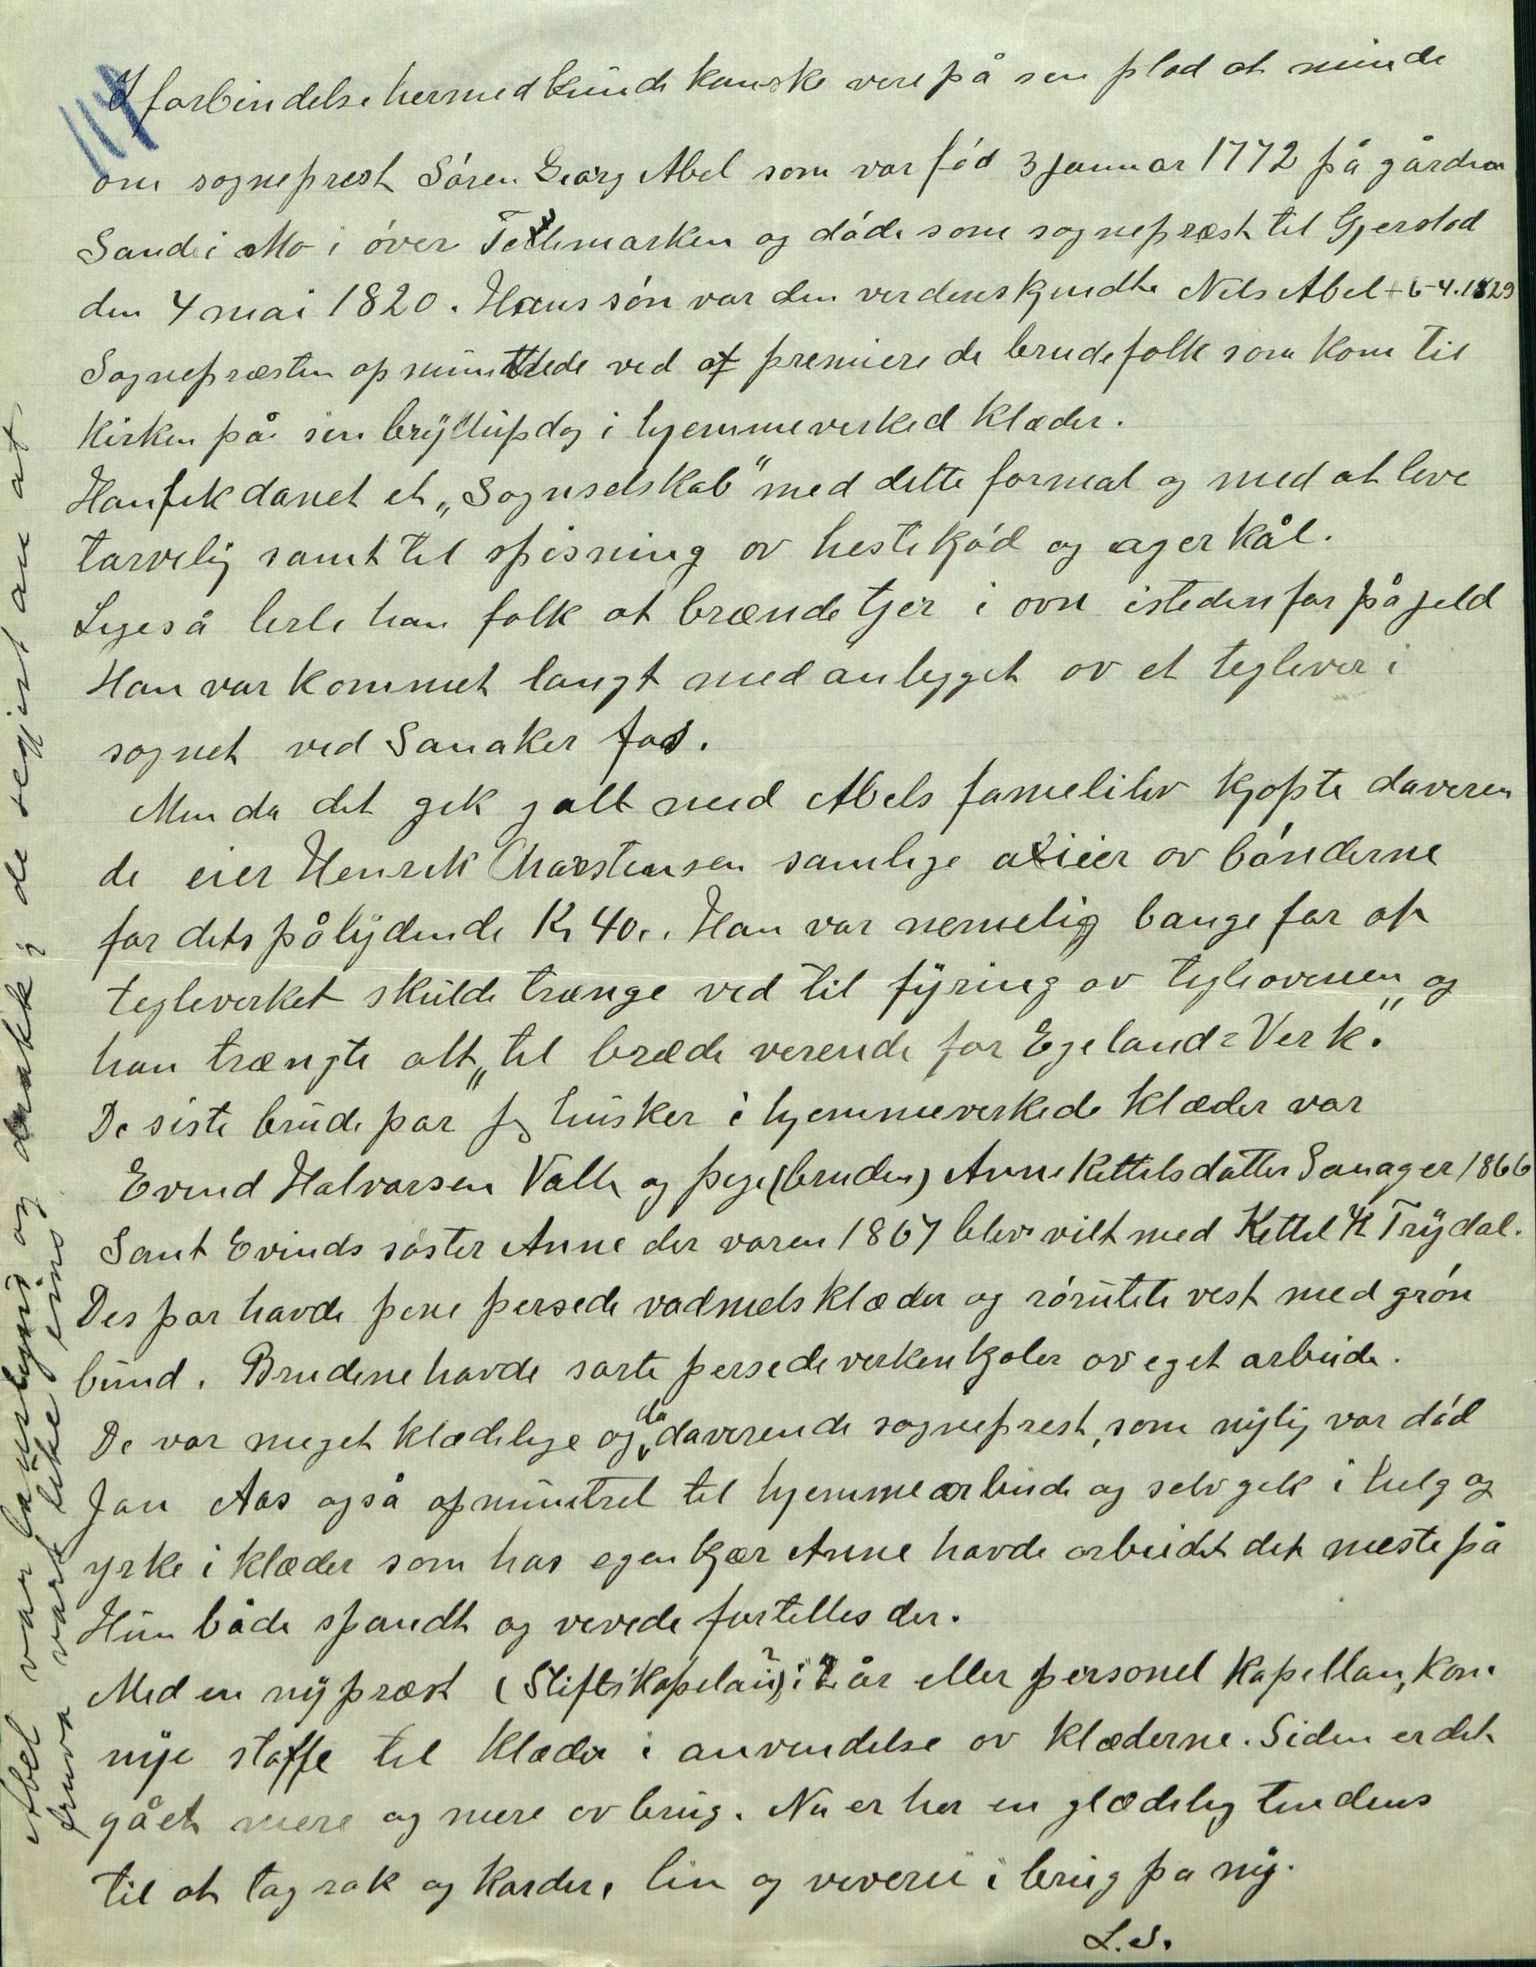 117
I forbindelse hermed kunde kanske vere på sin plad at minde
om sogneprest Sören Georg Abel som var föd 3 januar 1772 på gården
Sande i Mo i över Telemarken og döde som sognepræst til Gjerstad
den 4 mai 1820. Hans sön var den verdenskjendte Nils Abel + 6-4.1829
Sognepræsten opmuntrede ved at premiere de brudefolk som kom til
kirken på sin bryllupdag i hjemmevirked klæder.
Han fik danet et „Sognselskab" med dette formal og med at leve
tarvelig samt til spisning ov hestekjöd og agerkål.
Ligeså lerte han folk at brænde tjer i ovn istedenfor på jeld
Han var kommet langt med anlegget ov et teglever i
sognet ved Sanaker fos.
Men da det gik galt med Abels famililiv kjøpte daveren
de eier Henrik Charstensen samlige axieer ov bönderne
for dets pålydende Kr 40,. Han var nemelig bange for at
tegleverket skulde trænge ved til fyring ov tegleovenen og
han trængte alt „til bræde verende for Egelands Verk."
De siste brudepar jeg husker i hjemmeverkede klæder var
Evend Halvorsen Valle og pige (bruden) Anne Kittelsdatter Sanager 1866
Samt Evinds søster Anne der våren 1867 blev vilt med Kettel K Trydal.
Des par havde pene persede vadmelsklæder og rörutete vest med grön
bund. Brudene havde sorte persede verkenkjoler ov eget arbeide.
De var meget klædelige og da daverende sogneprest, som nylig var död
Jan Aas også opmuntret til hjemmearbeide og selv gik i helg og
yrke i klæder som has egen kjær Anne havde arbeidet det meste på
Hun både spandt og vevede fortelles der.
Med en ny præst (Stiftskapelan?) i 2 år eller personel kapellan, kom
nye stoffe til klæder i anvendelse ov klæderne. Siden er det
gået mere og mere ov brug. Nu er her en glædelig tendens
til at tag rok og karder, lin og veverie i brug på ny.
L.S.
Abel var og drakk; de segjest an at
fruva vart like eins